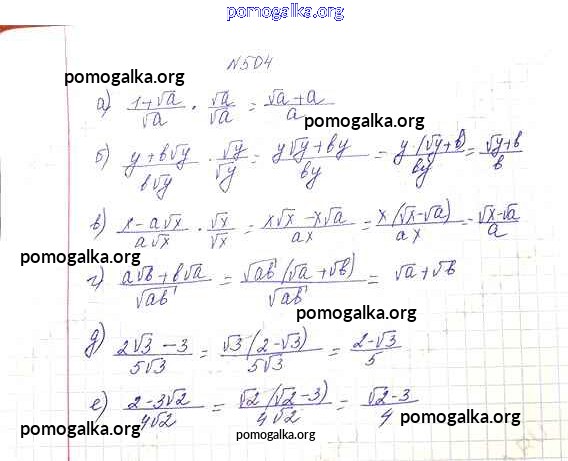 pomogalka.org
N504
pomogalka.org
а) (1+√a)/√a · √a/√a = (√a+a)/a
pomogalka.org
б) (y+b√y)/(b√y) · √y/√y = (y√y+by)/(by) = (y(√y+b))/(by) = (√y+b)/b
в) (x-a√x)/(a√x) · √x/√x = (x√x-x√a)/(ax) = (x(√x-√a))/(ax) = (√x-√a)/a
pomogalka.org
г) (a√b+b√a)/√ab = (√ab(√a+√b))/√ab = √a+√b
pomogalka.org
д) (2√3-3)/(5√3) = (√3(2-√3))/(5√3) = (2-√3)/5
е) (2-3√2)/(4√2) = (√2(√2-3))/(4√2) = (√2-3)/4
pomogalka.org pomogalka.org pomogalka.org